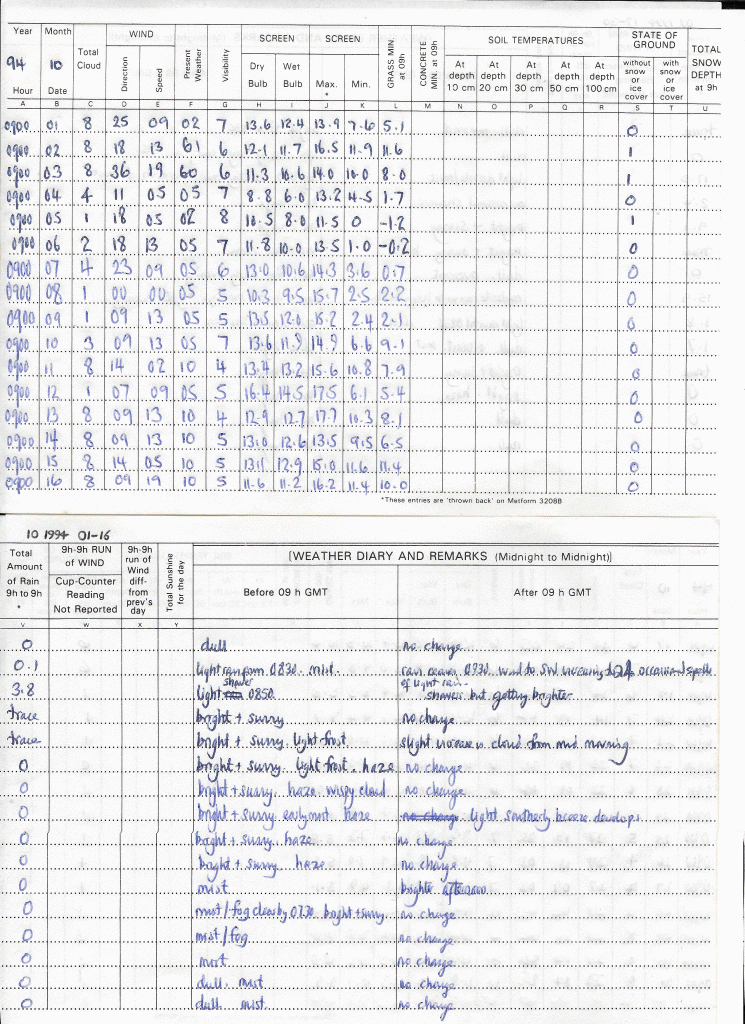 Year Month Total Cloud WIND Present Weather Visibility SCREEN SCREEN GRASS MIN. at 09h CONCRETE MIN. at 09h SOIL TEMPERATURES STATE OF GROUND TOTAL SNOW DEPTH at 9h
94 10 Direction Speed Dry Bulb Wet Bulb Max. * Min. At depth 10 cm At depth 20 cm At depth 30 cm At depth 50 cm At depth 100 cm without snow or ice cover with snow or ice cover
Hour Date
A B C D E F G H I J K L M N O P Q R S T U
0900 01 8 25 09 02 7 13.6 12.4 13.9 7.6 5.1 0
0900 02 8 18 13 61 6 12.1 11.7 16.5 11.9 11.6 1
0900 03 8 36 19 60 6 11.3 10.6 14.0 10.0 8.0 1
0900 04 4 11 05 05 7 8.8 6.0 13.2 4.5 1.7 0
0900 05 1 18 05 02 8 10.5 8.0 11.5 0 -1.2 1
0900 06 2 18 13 05 7 11.8 10.0 13.5 1.0 -0.2 0
0900 07 4 23 09 05 6 13.0 10.6 14.3 3.6 0.7 0
0900 08 1 00 00 05 5 10.3 9.5 15.7 2.5 2.2 0
0900 09 1 09 13 05 5 13.5 12.0 15.2 2.4 2.1 0
0900 10 3 09 13 05 7 13.6 11.9 14.9 6.6 9.1 0
0900 11 8 14 02 10 4 13.4 13.2 15.6 10.8 7.9 0
0900 12 1 07 09 05 5 16.4 14.5 17.5 6.1 5.4 0
0900 13 8 09 13 10 4 12.9 12.7 17.7 10.3 8.1 0
0900 14 8 09 13 10 5 13.0 12.6 13.5 9.5 6.5 0
0900 15 8 14 05 10 5 13.1 12.9 15.0 11.6 11.4 0
0900 16 8 09 19 10 5 11.6 11.2 16.2 11.4 10.0 0
*These entries are 'thrown back' on Metform 3208B
10 1994 01-16
Total Amount of Rain 9h to 9h * 9h-9h RUN of WIND Cup-Counter Reading Not Reported 9h-9h run of Wind diff- from prev's day Total Sunshine for the day [WEATHER DIARY AND REMARKS (Midnight to Midnight)]
Before 09 h GMT After 09 h GMT
V W X Y
0 dull no change
0.1 light rain from 0830. mist. rain ceases 0930. wind to SW increasing to 24 occasional spells of light rain
3.8 light shower 0850 showers but getting brighter
trace bright + sunny no change
trace bright + sunny. light frost slight increase in cloud from mid morning
0 bright + sunny. light frost. haze no change
0 bright + sunny. haze wispy cloud no change
0 bright + sunny. early mist. haze no change light southerly breeze develops
0 bright + sunny. haze no change
0 bright + sunny. haze no change
0 mist brighter afternoon
0 mist/fog clears by 0730. bright + sunny. no change
0 mist/fog no change
0 mist no change
0 dull. mist no change
0 dull. mist. no change